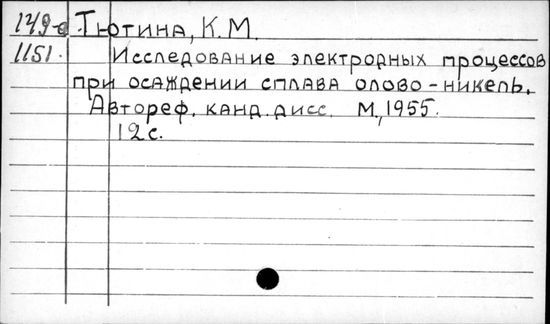 149-а Тютина, К.М.
1151. Исследование электродных процессов
при осаждении сплава олово-никель.
Автореф. канд. дисс. М., 1955.
12с.